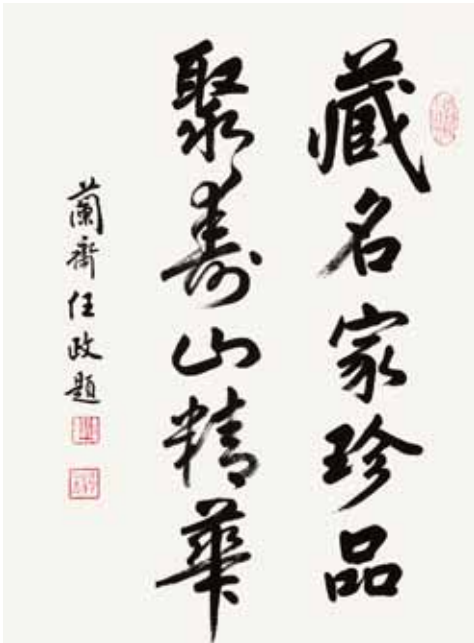 藏名家珍品
聚寿山精華
蘭齋任政題